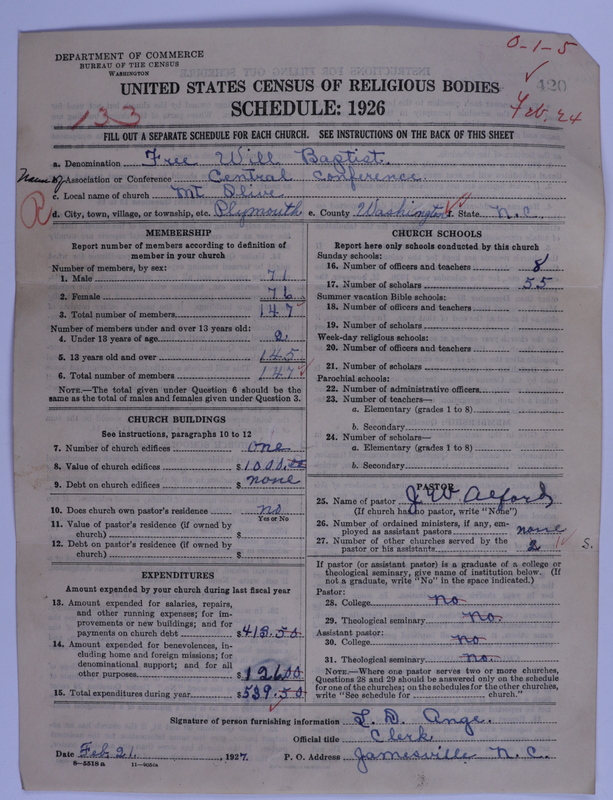 DEPARTMENT OF COMMERCE
BUREAU OF THE CENSUS
WASHINGTON
0-1-5
420
UNITED STATES CENSUS OF RELIGIOUS BODIES
133
SCHEDULE: 1926
Feb. 24
FILL OUT A SEPARATE SCHEDULE FOR EACH CHURCH. SEE INSTRUCTIONS ON THE BACK OF THIS SHEET
a. Denomination Free Will Baptist.
Name of
b. Association or Conference Central Conference.
c. Local name of church Mt Olive
R
d. City, town, village, or township, etc. Plymouth e. County Washington f. State N.C.
MEMBERSHIP
Report number of members according to definition of
member in your church
Number of members, by sex:
1. Male 71
2. Female 76
3. Total number of members 147
Number of members under and over 13 years old:
4. Under 13 years of age 2.
5. 13 years old and over 145
6. Total number of members 147
NOTE.—The total given under Question 6 should be the
same as the total of males and females given under Question 3.
CHURCH BUILDINGS
See instructions, paragraphs 10 to 12
7. Number of church edifices one
8. Value of church edifices $1000.00
9. Debt on church edifices $none
10. Does church own pastor's residence no
Yes or No
11. Value of pastor's residence (if owned by
church) $
12. Debt on pastor's residence (if owned by
church) $
EXPENDITURES
Amount expended by your church during last fiscal year
13. Amount expended for salaries, repairs,
and other running expenses; for im-
provements or new buildings; and for
payments on church debt $413.50
14. Amount expended for benevolences, in-
cluding home and foreign missions; for
denominational support; and for all
other purposes $126.00
15. Total expenditures during year $539.50
CHURCH SCHOOLS
Report here only schools conducted by this church
Sunday schools:
16. Number of officers and teachers 8
17. Number of scholars 55
Summer vacation Bible schools:
18. Number of officers and teachers
19. Number of scholars
Week-day religious schools:
20. Number of officers and teachers
21. Number of scholars
Parochial schools:
22. Number of administrative officers
23. Number of teachers—
a. Elementary (grades 1 to 8)
b. Secondary
24. Number of scholars—
a. Elementary (grades 1 to 8)
b. Secondary
PASTOR
25. Name of pastor J W Alford
(If church has no pastor, write "None")
26. Number of ordained ministers, if any, em-
ployed as assistant pastors none
27. Number of other churches served by the
pastor or his assistants 2
S.
If pastor (or assistant pastor) is a graduate of a college or
theological seminary, give name of institution below. (If
not a graduate, write "No" in the space indicated.)
Pastor:
28. College no
29. Theological seminary no.
Assistant pastor:
30. College no
31. Theological seminary no.
NOTE.—Where one pastor serves two or more churches,
Questions 28 and 29 should be answered only on the schedule
for one of the churches; on the schedules for the other churches,
write "See schedule for church."
Signature of person furnishing information L. D. Ange.
Official title Clerk
Date Feb 21., 1927. P. O. Address Jamesville N.C.
8-5518 a